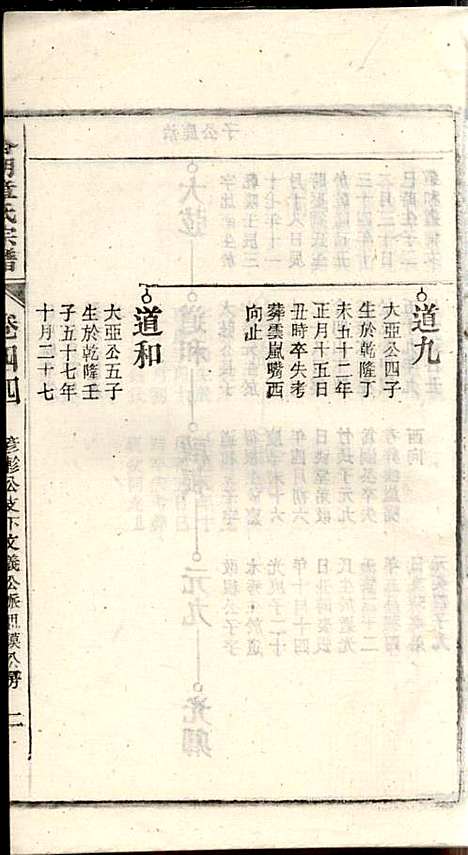 道九
大亞公四子
生於乾隆丁
未五十二年
正月十五日
丑時卒失考
葬雲嵐嘴西
向止
道和
大亞公五子
生於乾隆壬
子五十七年
十月二十七
章氏宗譜
卷四四
彥彭公支下文義公派